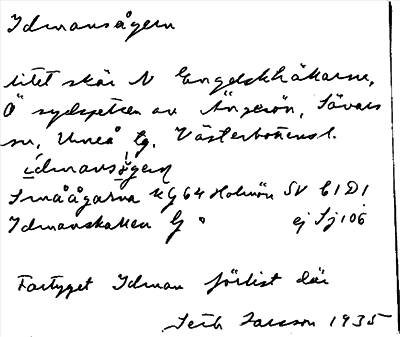 Idmansågern
litet skär N Engelskhäkarne,
Ö sydspetsen av Ängesön, Sävars
sn, Umeå tg. Västerbottensl.
idmansågern
Småågarna kg 64 Holmön SV C1D1
Idmanskallen G ej Sj 106
Fartyget Idman förlist där
Larsson 1935